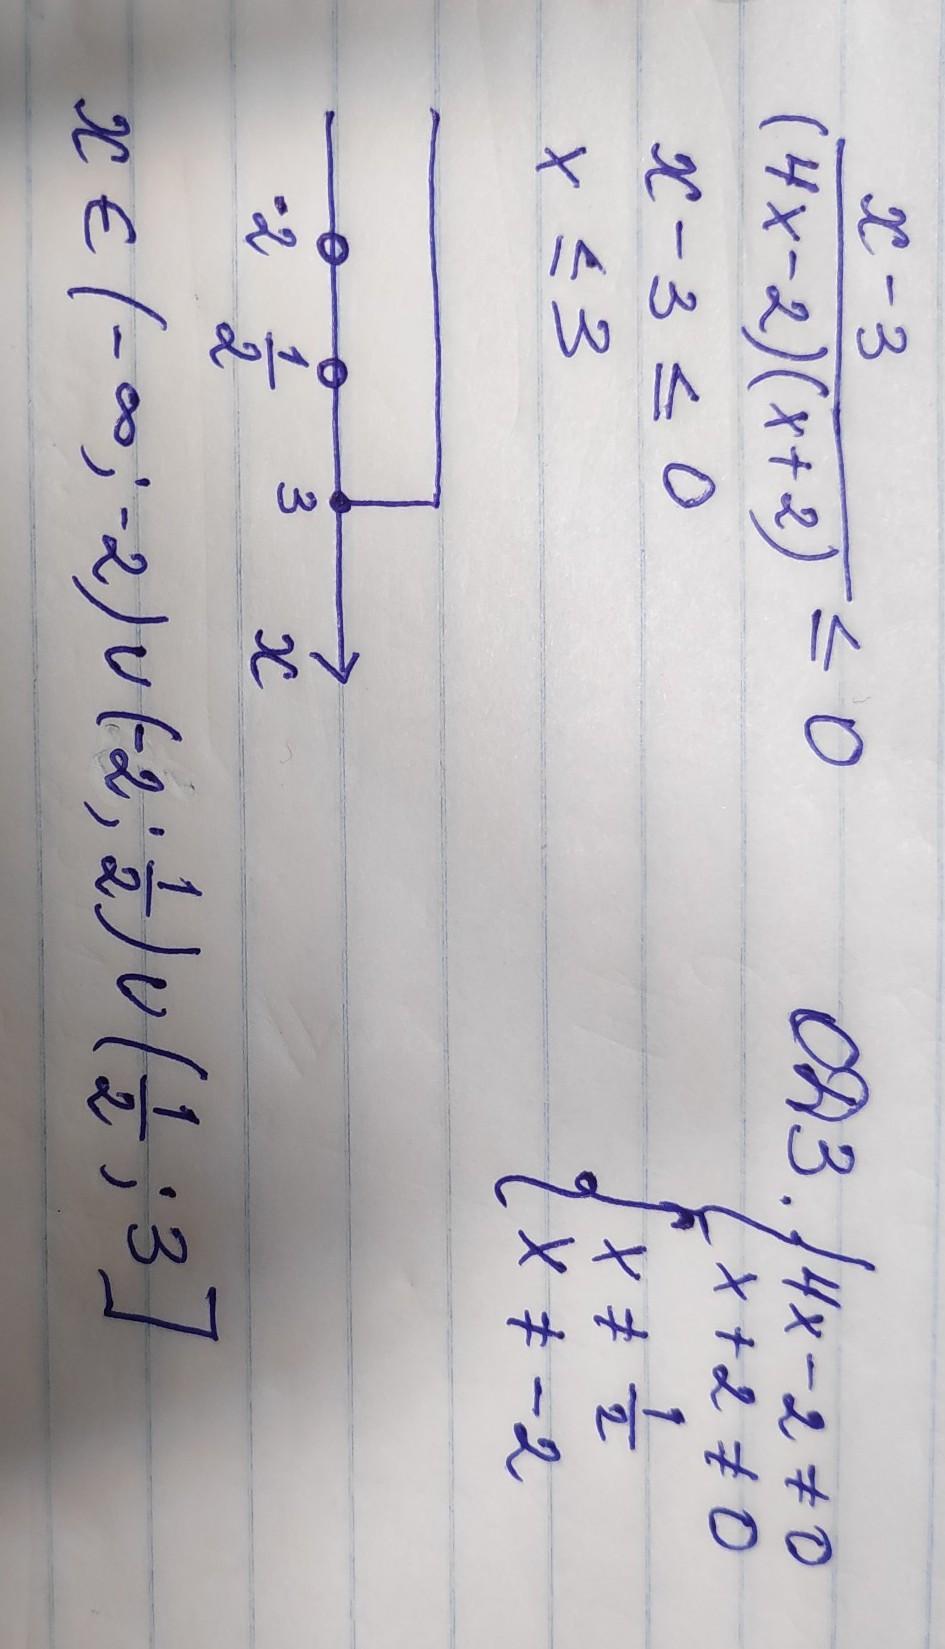 x - 3
(4x - 2)(x + 2) ≤ 0
ОДЗ. { 4x - 2 ≠ 0
x + 2 ≠ 0
x - 3 ≤ 0
{ x ≠ 1/2
x ≤ 3
x ≠ -2
-2 1/2 3 x
x ∈ (-∞; -2) ∪ (-2; 1/2) ∪ (1/2; 3]